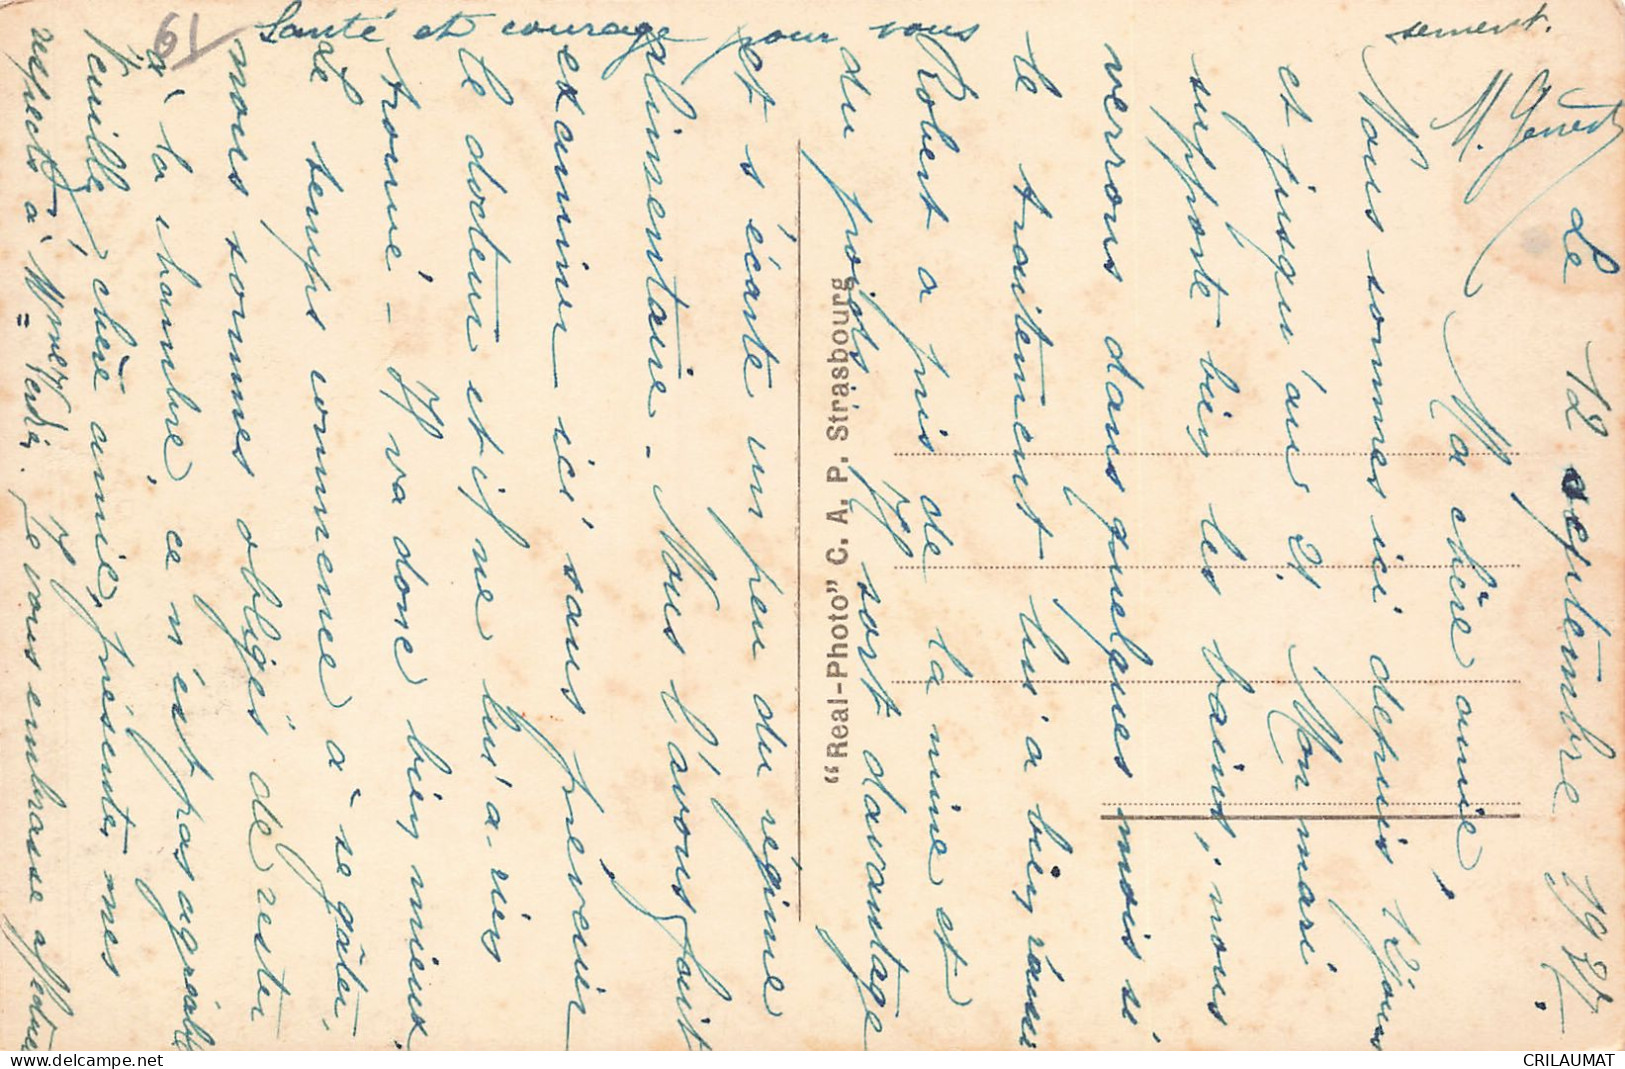 Le 12 septembre 1927.
Ma chère amie,
Nous sommes ici depuis 12 jours
et jusqu'au 21. Mon mari
supporte bien les bains, nous
verrons dans quelques mois si
le traitement lui a bien réussi
Robert a pris de la mine et
du poids. Il sort davantage
et s'écarte un peu du régime
alimentaire. Nous l'avons fait
examiner ici sans prévenir
le docteur et il ne lui a rien
trouvé - Il va donc bien mieux.
Le temps commence à se gâter,
nous sommes obligés de rester
à la chambre, ce n'est pas agréable
Veuillez, chère amie, présenter mes
respects à Mme Verdie. Je vous embrasse affectueu
sement.
M. Genest
Santé et courage pour vous
61
"Real-Photo" C. A. P. Strasbourg
CRILAUMAT
delcampe.net